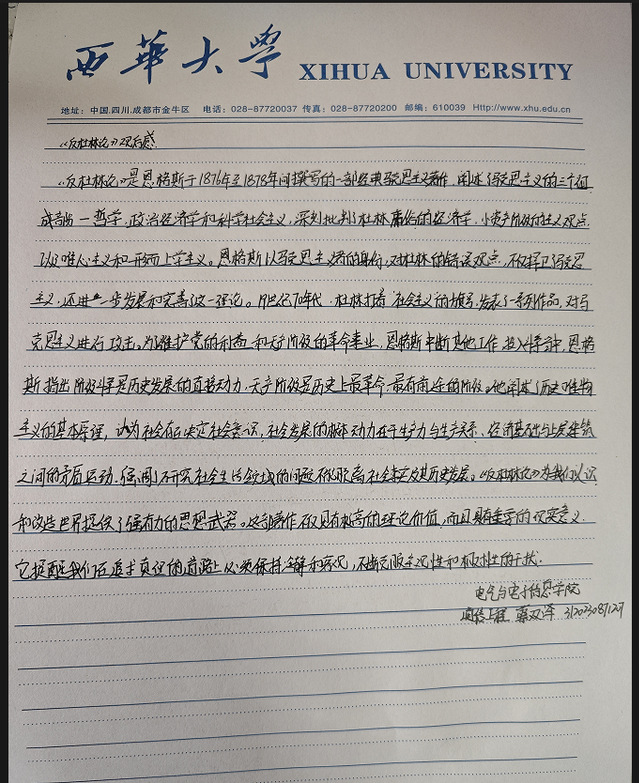 西華大學 XIHUA UNIVERSITY
地址：中国.四川.成都市金牛区 电话：028-87720037 传真：028-87720200 邮编：610039 Http://www.xhu.edu.cn
《反杜林论》观后感
《反杜林论》是恩格斯于1876年至1878年间撰写的一部经典马克思主义著作，阐述了马克思主义的三个组
成部分—哲学、政治经济学和科学社会主义，深刻批判了杜林庸俗的经济学、小资产阶级的社会主义观点
以及唯心主义和形而上学主义。恩格斯以马克思主义者的身份，对杜林的错误观点，不仅捍卫了马克思
主义，还进一步发展和完善这一理论。19世纪70年代，杜林打着"社会主义"的旗号，发表了一系列作品，对马
克思主义进行攻击，为维护党的利益和无产阶级的革命事业，恩格斯中断其他工作，投入斗争当中，恩格
斯指出阶级斗争是历史发展的直接动力，无产阶级是历史上最革命、最有前途的阶级。他阐述了历史唯物
主义的基本原理，认为社会存在决定社会意识，社会发展的根本动力在于生产力与生产关系、经济基础与上层建筑
之间的矛盾运动，强调了研究社会生活领域的问题不能脱离社会其历史发展。《反杜林论》为我们认识
和改造世界提供了强有力的思想武器。这部著作不仅具有极高的理论价值，而且具有重要的现实意义，
它提醒我们在追求真理的道路上必须保持，不断克服主观性和的干扰。
电气与电子信息学院
312023087127